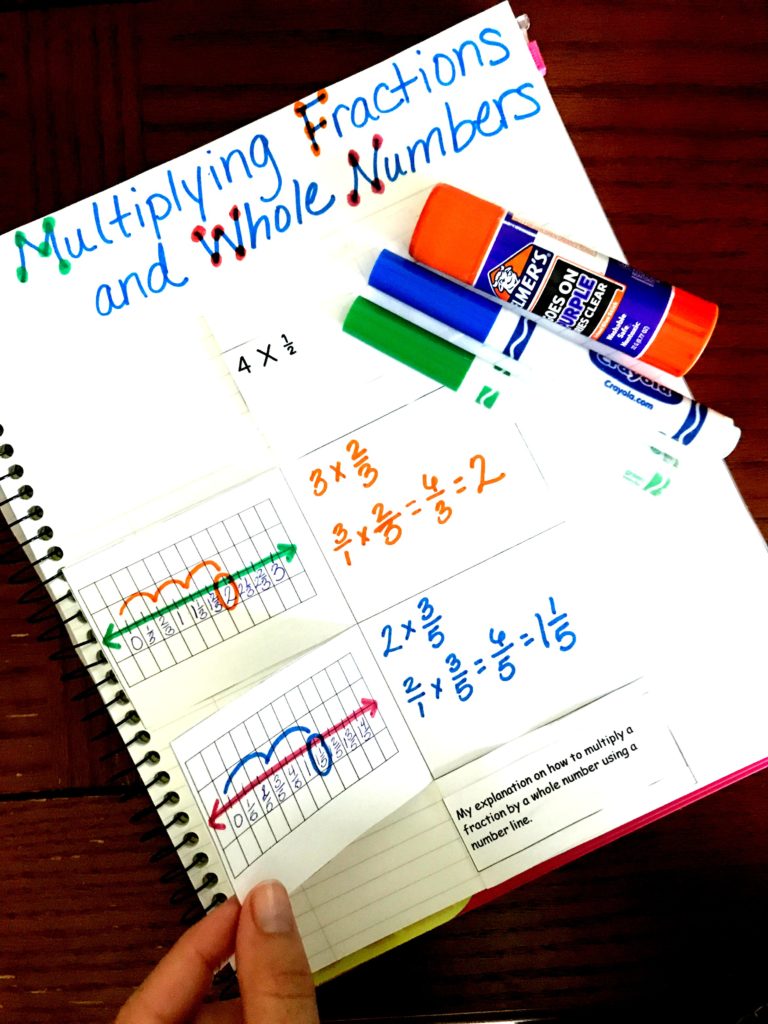 Multiplying Fractions
and Whole Numbers
ELMER'S
GOES ON
PURPLE
DRIES CLEAR
Washable
Safe
Nontoxic
Crayola
Crayola.com
4 X 1/2
3 × 2/3
3/1 × 2/3 = 6/3 = 2
0 1/3 2/3 1 1 1/3 1 2/3 2 2 1/3 2 2/3 3
2 × 3/5
2/1 × 3/5 = 6/5 = 1 1/5
0 1/5 2/5 3/5 4/5 1 1 1/5 1 2/5 1 3/5 1 4/5
My explanation on how to multiply a
fraction by a whole number using a
number line.